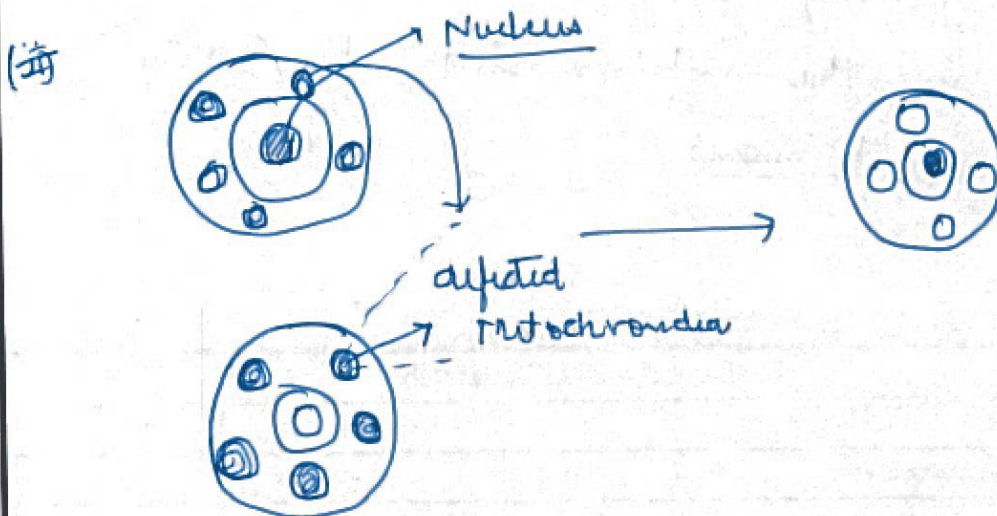 (iii)
Nucleus
defected
Mitochrondia